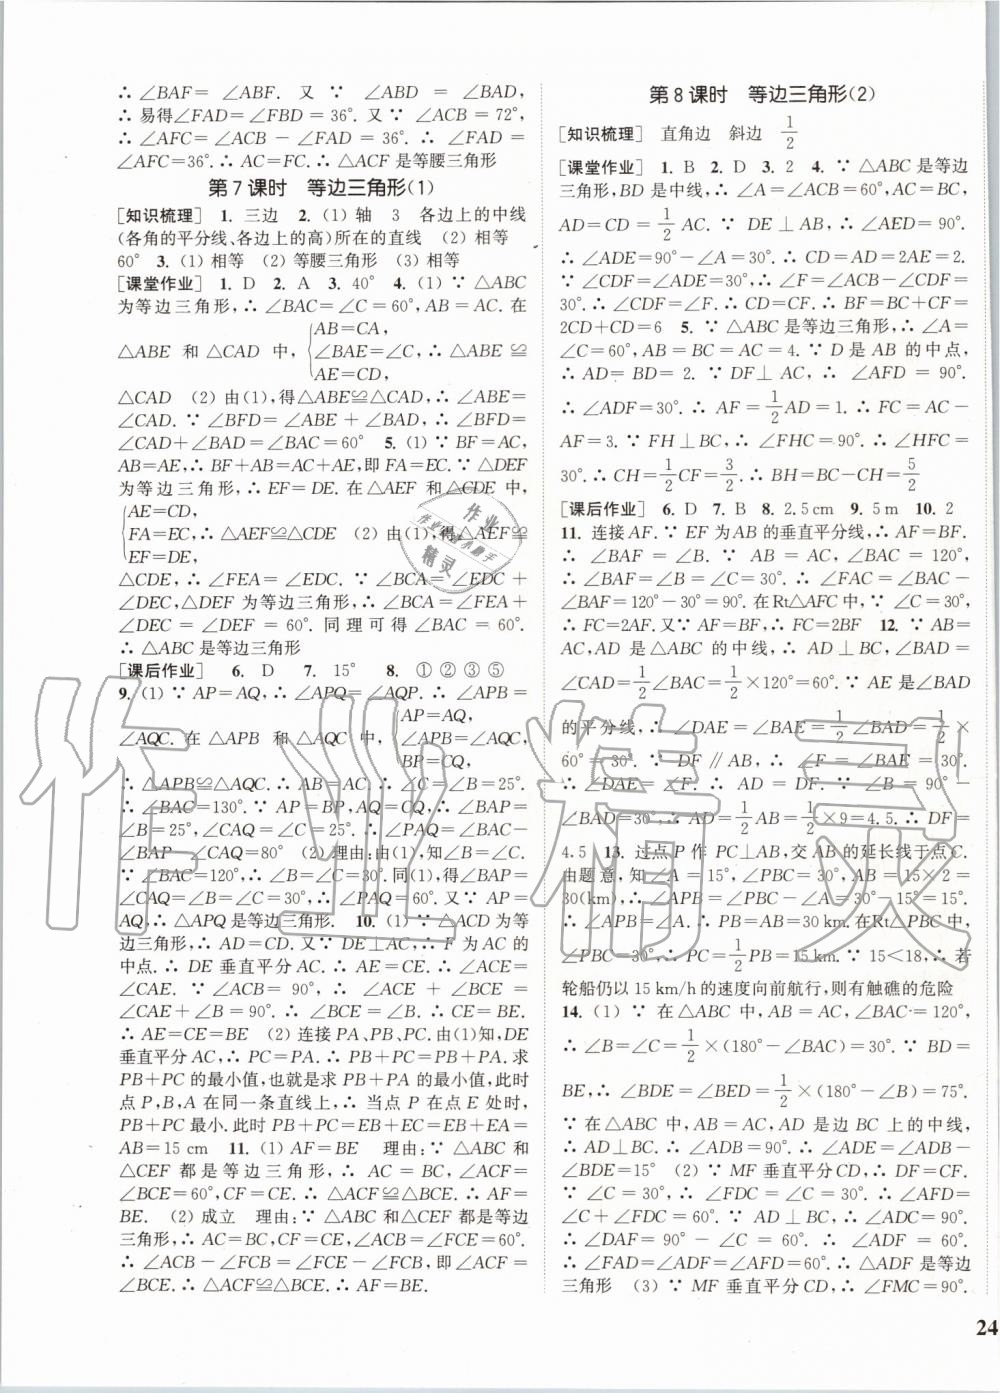 ∴ ∠BAF= ∠ABF. 又 ∵ ∠ABD = ∠BAD,
∴ 易得∠FAD=∠FBD=36°. 又∵ ∠BAC=72°,
∴ ∠AFC=∠ACB－∠FAC=36°. ∴ ∠FAD =
∠AFC=36°. ∴ AC=FC. ∴ △ACF 是等腰三角形
第 7 课时 等边三角形(1)
[知识梳理] 1. 三边 2. (1) 轴 3 各边上的中线
(各角的平分线、各边上的高)所在的直线 (2) 相等
60° 3. (1) 相等 (2) 等腰三角形 (3) 相等
[课堂作业] 1. D 2. A 3. 40° 4. (1) ∵ △ABC
为等边三角形,∴ ∠BAC=∠C=60°,AB=AC. 在
△ABE 和 △CAD 中, { AB=CA, ∠BAE=∠C, AE=CD, ∴ △ABE ≌
△CAD (2) 由(1),得△ABE≌△CAD,∴ ∠ABE=
∠CAD. ∵ ∠BFD=∠ABE + ∠BAD,∴ ∠BFD=
∠CAD+∠BAD=∠BAC=60° 5. (1) ∵ BF=AC,
AB=AE,∴ BF+AB=AC+AE,即 FA=EC. ∵ △DEF
为等边三角形,∴ EF=DE. 在△AEF 和△CDE 中,
{ AE=CD, FA=EC, EF=DE, ∴ △AEF≌△CDE (2) 由(1),得△AEF≌
△CDE,∴ ∠FEA=∠EDC. ∵ ∠BCA=∠EDC+
∠DEC,△DEF 为等边三角形,∴ ∠BCA=∠FEA+
∠DEC = ∠DEF = 60°. 同理可得 ∠BAC = 60°.
∴ △ABC 是等边三角形
[课后作业] 6. D 7. 15° 8. ①②③⑤
9. (1) ∵ AP=AQ,∴ ∠APQ=∠AQP. ∴ ∠APB=
∠AQC. 在 △APB 和 △AQC 中, { AP=AQ, ∠APB=∠AQC, BP=CQ,
∴ △APB≌△AQC. ∴ AB=AC. ∴ ∠C=∠B=25°.
∴ ∠BAC=130°. ∵ AP=BP,AQ=CQ,∴ ∠BAP=
∠B=25°,∠CAQ=∠C=25°. ∴ ∠PAQ=∠BAC－
∠BAP－∠CAQ=80° (2) 理由:由(1),得∠B=∠C.
∵ ∠BAC=120°,∴ ∠B=∠C=30°. 同(1),得∠BAP=
∠CAQ=∠B=∠C=30°,∴ ∠PAQ=60°. 又∵ AP=
AQ,∴ △APQ 是等边三角形. 10. (1) ∵ △ACD 为等
边三角形,∴ AD=CD. 又∵ DE⊥AC,∴ F 为AC 的
中点. ∴ DE 垂直平分 AC. ∴ AE=CE. ∴ ∠ACE=
∠CAE. ∵ ∠ACB=90°,∴ ∠ACE + ∠BCE =
∠CAE+∠B=90°. ∴ ∠BCE=∠B. ∴ CE=BE.
∴ AE=CE=BE (2) 连接 PA、PB、PC. 由(1)知,DE
垂直平分 AC,∴ PC=PA. ∴ PB+PC=PB+PA. 求
PB+PC 的最小值,也就是求 PB+PA 的最小值,此时
点 P,B,A 在同一条直线上,∴ 当点 P 在点 E 处时,
PB+PC 最小. 此时 PB+PC=EB+EC=EB+EA=
AB=15 cm 11. (1) AF=BE 理由:∵ △ABC 和
△CEF 都是等边三角形,∴ AC = BC,∠ACF=
∠BCE=60°,CF=CE. ∴ △ACF≌△BCE. ∴ AF=
BE. (2) 成立 理由:∵ △ABC 和△CEF 都是等边
三角形,∴ AC=BC,∠ACB=∠FCE=60°,CF=CE.
∴ ∠ACB－∠FCB = ∠FCE－∠FCB,即∠ACF =
∠BCE. ∴ △ACF≌△BCE. ∴ AF=BE.
第 8 课时 等边三角形(2)
[知识梳理] 直角边 斜边 1/2
[课堂作业] 1. B 2. D 3. 2 4. ∵ △ABC 是等边
三角形,BD 是中线,∴ ∠A=∠ACB=60°,AC=BC,
AD=CD = 1/2 AC. ∵ DE⊥AB,∴ ∠AED=90°.
∴ ∠ADE=90°－∠A=30°. ∴ CD=AD=2AE=2.
∵ ∠CDF=∠ADE=30°,∴ ∠F=∠ACB－∠CDF=
30°. ∴ ∠CDF=∠F. ∴ CD=CF. ∴ BF=BC+CF=
2CD+CD=6 5. ∵ △ABC 是等边三角形,∴ ∠A=
∠C=60°,AB=BC=AC=4. ∵ D 是 AB 的中点,
∴ AD= BD= 2. ∵ DF⊥ AC,∴ ∠AFD = 90°.
∴ ∠ADF=30°. ∴ AF = 1/2 AD=1. ∴ FC=AC－
AF=3. ∵ FH⊥BC,∴ ∠FHC=90°. ∴ ∠HFC=
30°. ∴ CH= 1/2 CF= 3/2. ∴ BH=BC－CH= 5/2
[课后作业] 6. D 7. B 8. 2.5 cm 9. 5 m 10. 2
11. 连接 AF. ∵ EF 为AB 的垂直平分线,∴ AF=BF.
∴ ∠BAF = ∠B. ∵ AB=AC,∠BAC = 120°,
∴ ∠B = ∠C = 30°. ∴ ∠FAC = ∠BAC －
∠BAF=120°－30°=90°. 在Rt△AFC 中,∵ ∠C=30°,
∴ FC=2AF. 又∵ AF=BF,∴ FC=2BF 12. ∵ AB=
AC,AD 是△ABC 的中线,∴ AD⊥BC,∠BAD =
∠CAD= 1/2 ∠BAC= 1/2 ×120°=60°. ∵ AE 是∠BAD
的平分线,∴ ∠DAE =∠BAE= 1/2 ∠BAD= 1/2 ×
60° = 30°. ∵ DF∥AB,∴ ∠F = ∠BAE = 30°.
∴ ∠DAE = ∠F. ∴ AD = DF. ∵ ∠B=90°－
∠BAD=30°,∴ AD= 1/2 AB= 1/2 ×9=4.5. ∴ DF=
4.5 13. 过点 P 作 PC⊥AB,交 AB 的延长线于点C.
由题意,知∠A = 15°,∠PBC=30°,AB = 15×2 =
30(km),∴ ∠APB=∠PBC－∠A=30°－15°=15°.
∴ ∠APB=∠A. ∴ PB=AB=30 km. 在Rt△PBC 中,
∠PBC=30°,∴ PC= 1/2 PB=15 km. ∵ 15<18,∴ 若
轮船仍以 15 km/h 的速度向前航行,则有触礁的危险
14. (1) ∵ 在△ABC 中,AB=AC,∠BAC=120°,
∴ ∠B=∠C= 1/2 ×(180°－∠BAC)=30°. ∵ BD=
BE,∴ ∠BDE = ∠BED= 1/2 ×(180°－∠B)=75°.
∵ 在△ABC 中,AB=AC,AD 是边 BC 上的中线,
∴ AD⊥BC. ∴ ∠ADB=90°. ∴ ∠ADE=∠ADB－
∠BDE=15° (2) ∵ MF 垂直平分CD,∴ DF=CF.
∵ ∠C = 30°,∴ ∠FDC = ∠C=30°. ∴ ∠AFD=
∠C+∠FDC=60°. ∵ AD⊥BC,∴ ∠ADC=90°.
∴ ∠DAF = 90°－∠C = 60°. ∴ ∠ADF = 60°.
∴ ∠FAD=∠AFD=∠ADF=60°. ∴ △ADF 是等边
三角形 (3) ∵ MF 垂直平分CD,∴ ∠FMC=90°.
24
作业精灵